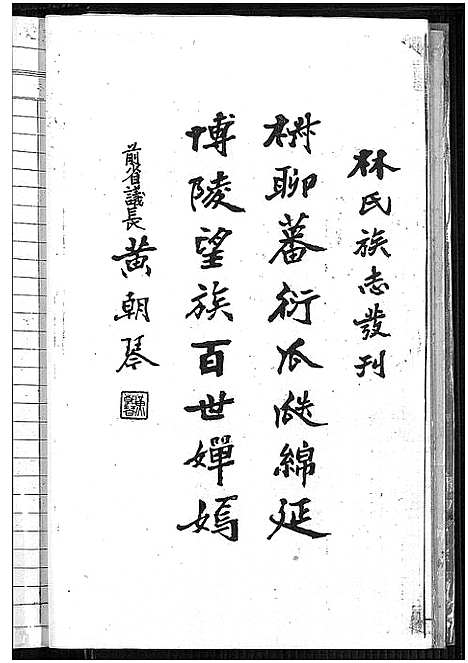 林氏族志發刊
椒聊蕃衍瓜瓞綿延
博陵望族百世嬋嫣
前省議長黃朝琴